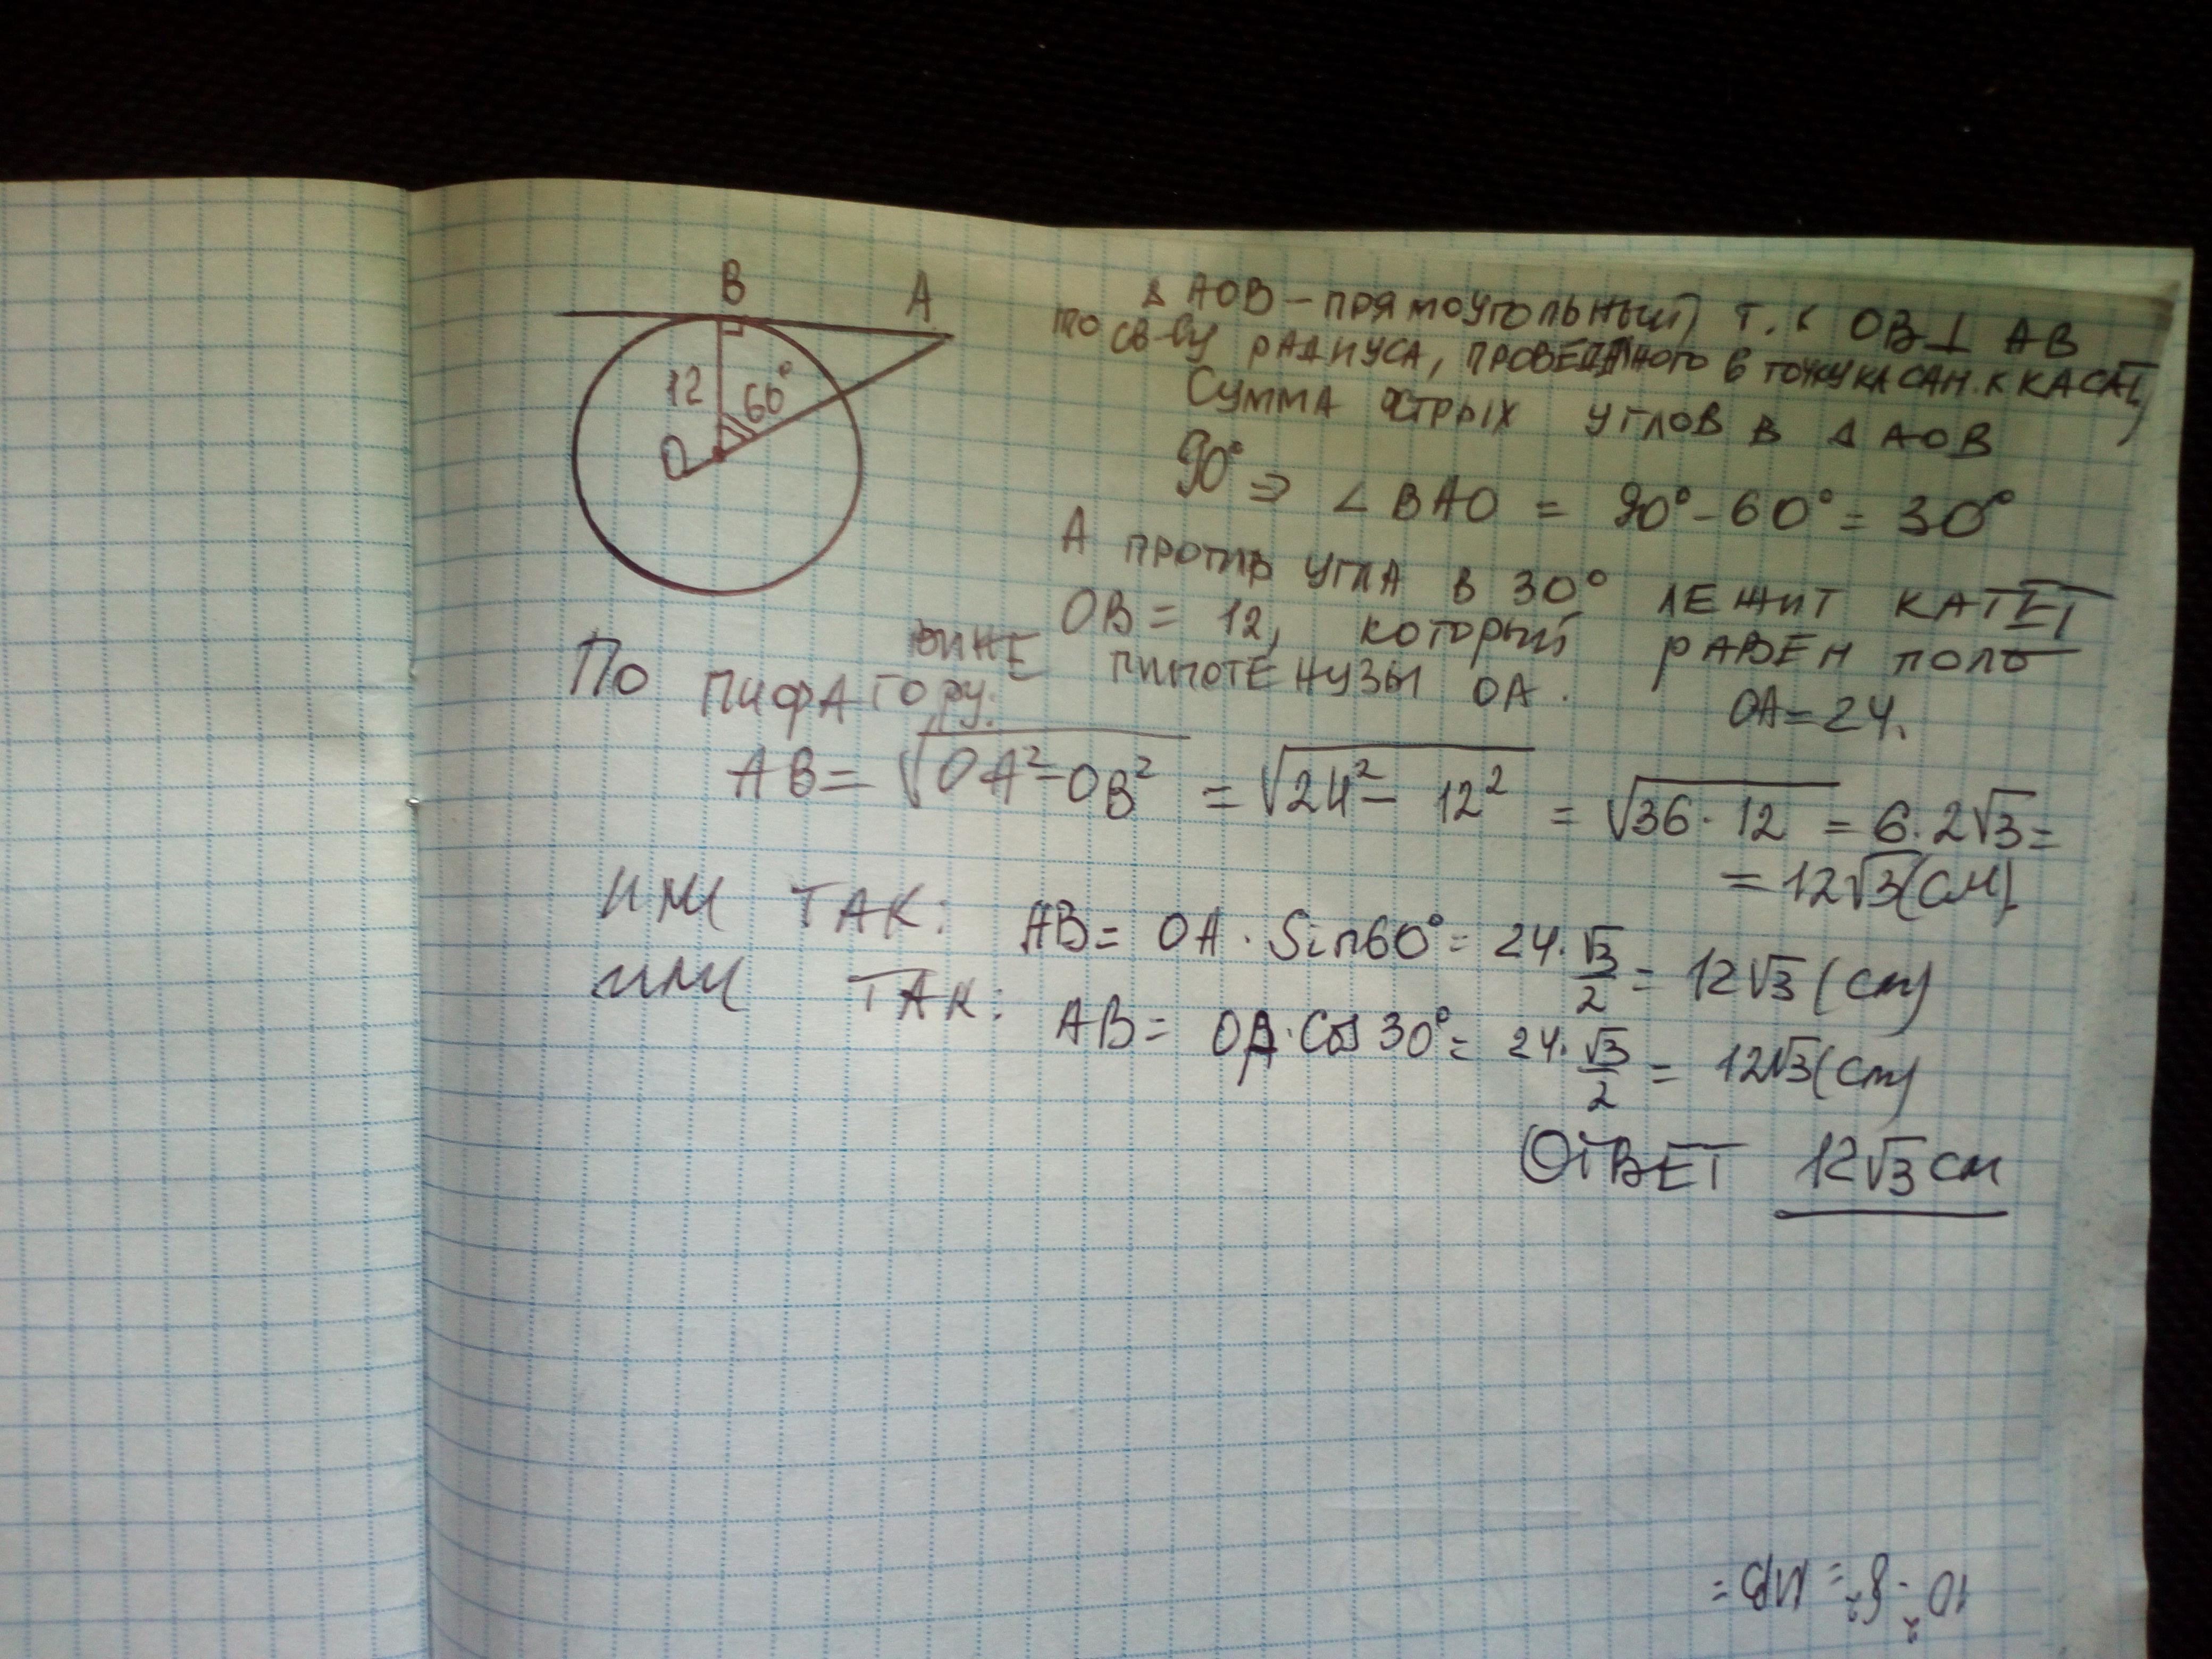 B
A
12
60°
O
Δ AOB – прямоугольный, т. к OB⊥ AB
по св-ву радиуса, проведённого в точку касан. к касат.
Сумма острых углов в Δ AOB
90° ⇒ ∠BAO = 90° - 60° = 30°
А против угла в 30° лежит катет
OB = 12, который равен поло
вине гипотенузы OA. OA = 24.
По Пифагору:
AB = √OA² - OB² = √24² - 12² = √36 · 12 = 6 · 2√3 =
= 12√3 (см)
или так: AB = OA · Sin60° = 24 · √3/2 = 12√3 (см)
или так: AB = OA · Cos 30° = 24 · √3/2 = 12√3 (см)
Ответ 12√3 см